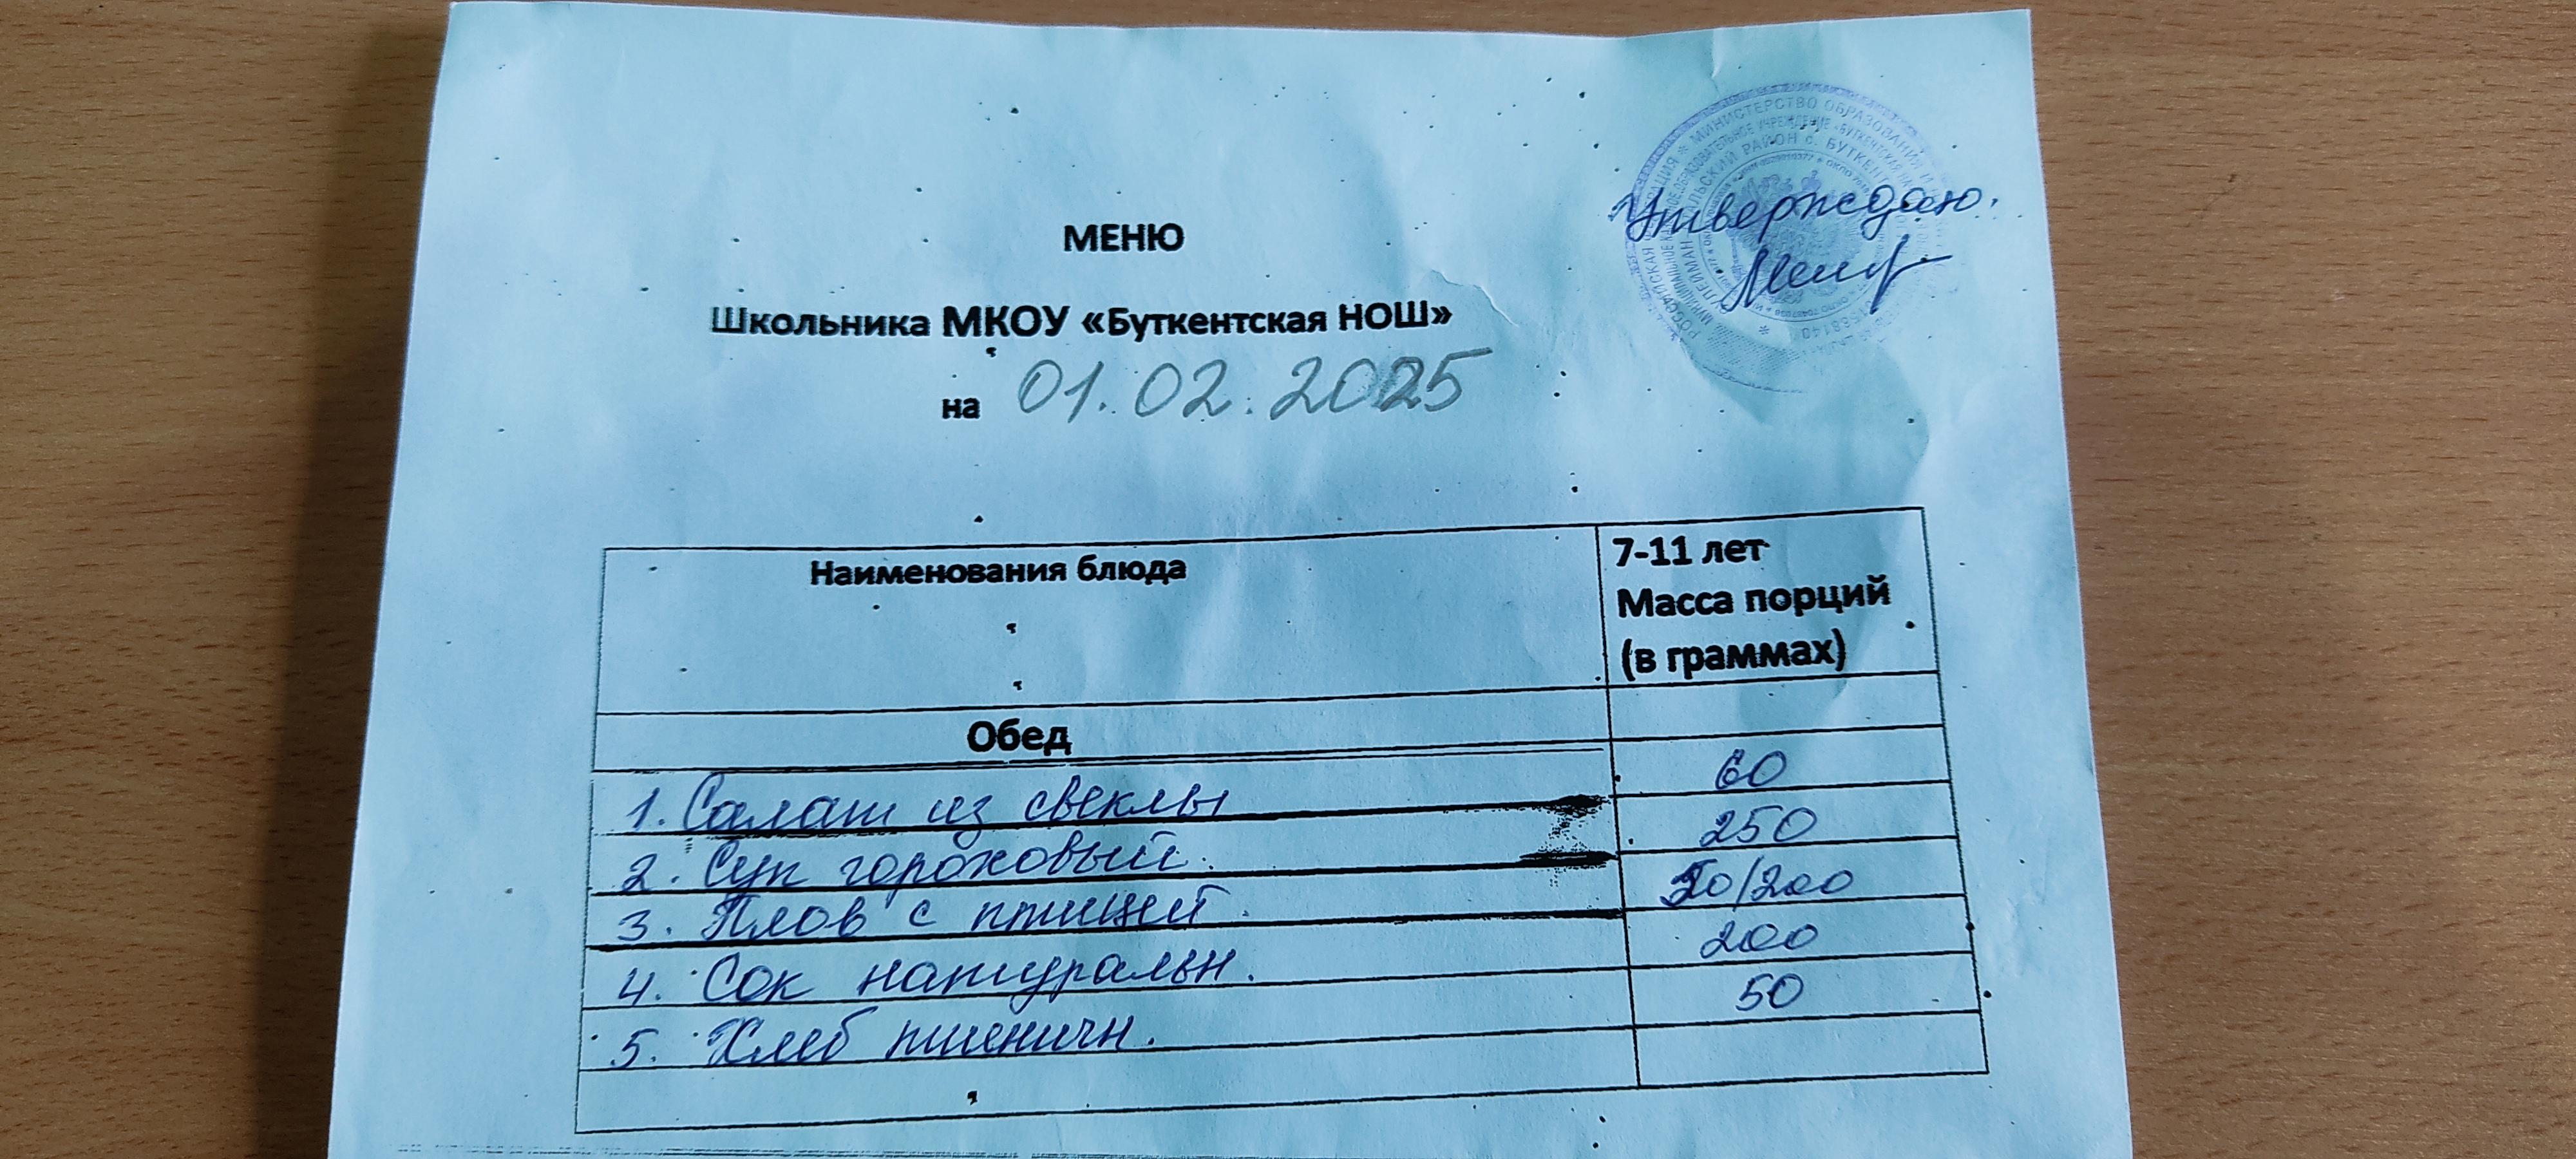 МИНИСТЕРСТВО ОБРАЗОВАНИЯ И
РАЙОН с. БУТКЕНТ
Утверждаю.
МЕНЮ
Школьника МКОУ «Буткентская НОШ»
на 01.02.2025
Наименования блюда
7-11 лет
Масса порций
(в граммах)
Обед
1. Салат из свеклы 60
2. Суп гороховый 250
3. Плов с птицей /200
4. Сок натуральн. 200
5. Хлеб пшеничн. 50